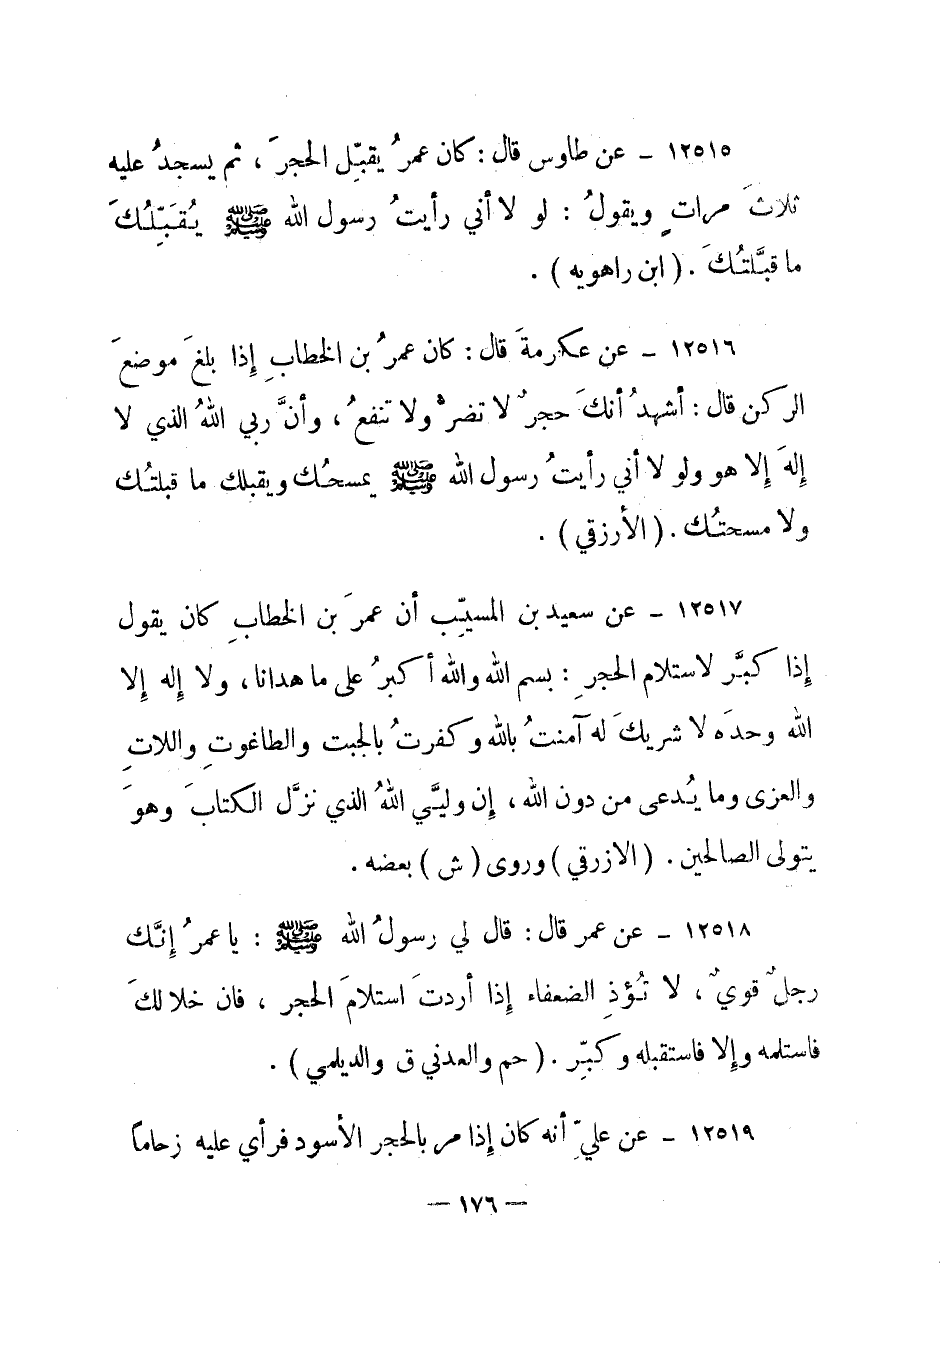 ١٢٥١٥ - عن طاوس قال : كان عمرُ يقبِّل الحجرَ ، ثم يسجدُ عليه
ثلاثَ مراتٍ ويقولُ : لو لا أني رأيتُ رسول الله ﷺ يُقَبِّلُكَ
ما قبَّلتُكَ . ( ابن راهويه ) .
١٢٥١٦ - عن عكرمةَ قال : كان عمرُ بن الخطابِ إذا بلغَ موضعَ
الركن قال : أشهدُ أنكَ حجرٌ لا تضرُّ ولا تنفعُ ، وأنَّ ربي اللهُ الذي لا
إلهَ إلا هو ولو لا أني رأيتُ رسول الله ﷺ يمسحُك ويقبلك ما قبلتُك
ولا مسحتُك . ( الأرزقي ) .
١٢٥١٧ - عن سعيد بن المسيِّب أن عمرَ بن الخطابِ كان يقول
إذا كبَّر لاستلام الحجرِ : بسم الله والله أكبرُ على ما هدانا ، ولا إله إلا
الله وحدَه لا شريكَ له آمنتُ بالله وكفرتُ بالجبت والطاغوتِ واللاتِ
والعزى وما يُدعى من دون الله ، إن وليَّي اللهُ الذي نزَّل الكتابَ وهوَ
يتولى الصالحين . ( الازرقي ) وروى ( ش ) بعضه .
١٢٥١٨ - عن عمر قال : قال لي رسولُ الله ﷺ : يا عمرُ إنَّك
رجلٌ قويٌ ، لا تُؤذِ الضعفاء إذا أردتَ استلامَ الحجر ، فان خلا لكَ
فاستلمه وإلا فاستقبله وكبِّر . ( حم والعدني ق والديلمي ) .
١٢٥١٩ - عن عليِّ أنه كان إذا مر بالحجر الأسود فرأي عليه زحاماً
— ١٧٦ —